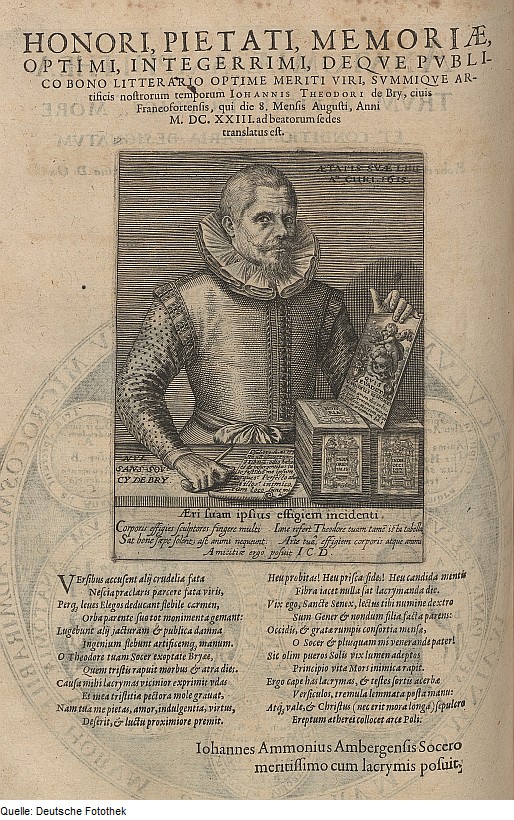 HONORI, PIETATI, MEMORIÆ,
OPTIMI, INTEGERRIMI, DEQVE PVBLI-
CO BONO LITTERARIO OPTIME MERITI VIRI, SVMMIQVE AR-
tificis nostrorum temporum IOHANNIS THEODORI de Bry, civis
Francofortensis, qui die 8, Mensis Augusti, Anni
M. DC. XXIII. ad beatorum sedes
translatus est.
ÆTATIS SVÆ LIIII
Aº CHRI. 1615
NVL
SANS SOV-
CY DE BRY
Æri suam ipsius effigiem incidenti.
Corporis effigies sculptores fingere multi
Sat bone sæpe solent, ast animi nequeunt.
Iane refert Theodore tuam tamē ista tabella
Arte tua, effigiem corporis atque animi
Amicitiæ ergo posuit I.C.D.
VErsibus accusent alij crudelia fata
Nescia præclaris parcere fata viris,
Perq, leues Elegos deducant flebile carmen,
Orba parente suo tot monimenta gemant:
Lugebunt alij jacturam & publica damna
Ingenium flebunt artificemq, manum.
O Theodore tuam Socer exoptate Bryæe,
Quem tristis rapuit morbus & atra dies.
Causa mihi lacrymas vicinior exprimit vdas
Et mea tristitia pectora mole grauat,
Nam tua me pietas, amor, indulgentia, virtus,
Deserit, & luctu proximiore premit.
Heu probitas! Heu prisca fides! Heu candida mentis
Fibra iacet nulla sat lacrymanda die.
Vix ego, Sancte Senex, lectus tibi numine dextro
Sum Gener & nondum filia facta parens:
Occidis, & gratæ rumpis consortia mensæ,
O Socer & plusquam mi venerande pater!
Sic olim pueros Solis vix lumen adeptos
Principio vitæ Mors inimica rapit.
Ergo cape has lacrymas, & testes sortis acerbæ
Versiculos, tremula lemmata posta manu:
Atq, vale, & Christus (nec erit mora longa) sepulcro
Ereptum æthereï collocet arce Poli.
Iohannes Ammonius Ambergensis Socero
meritissimo cum lacrymis posuit;
Quelle: Deutsche Fotothek